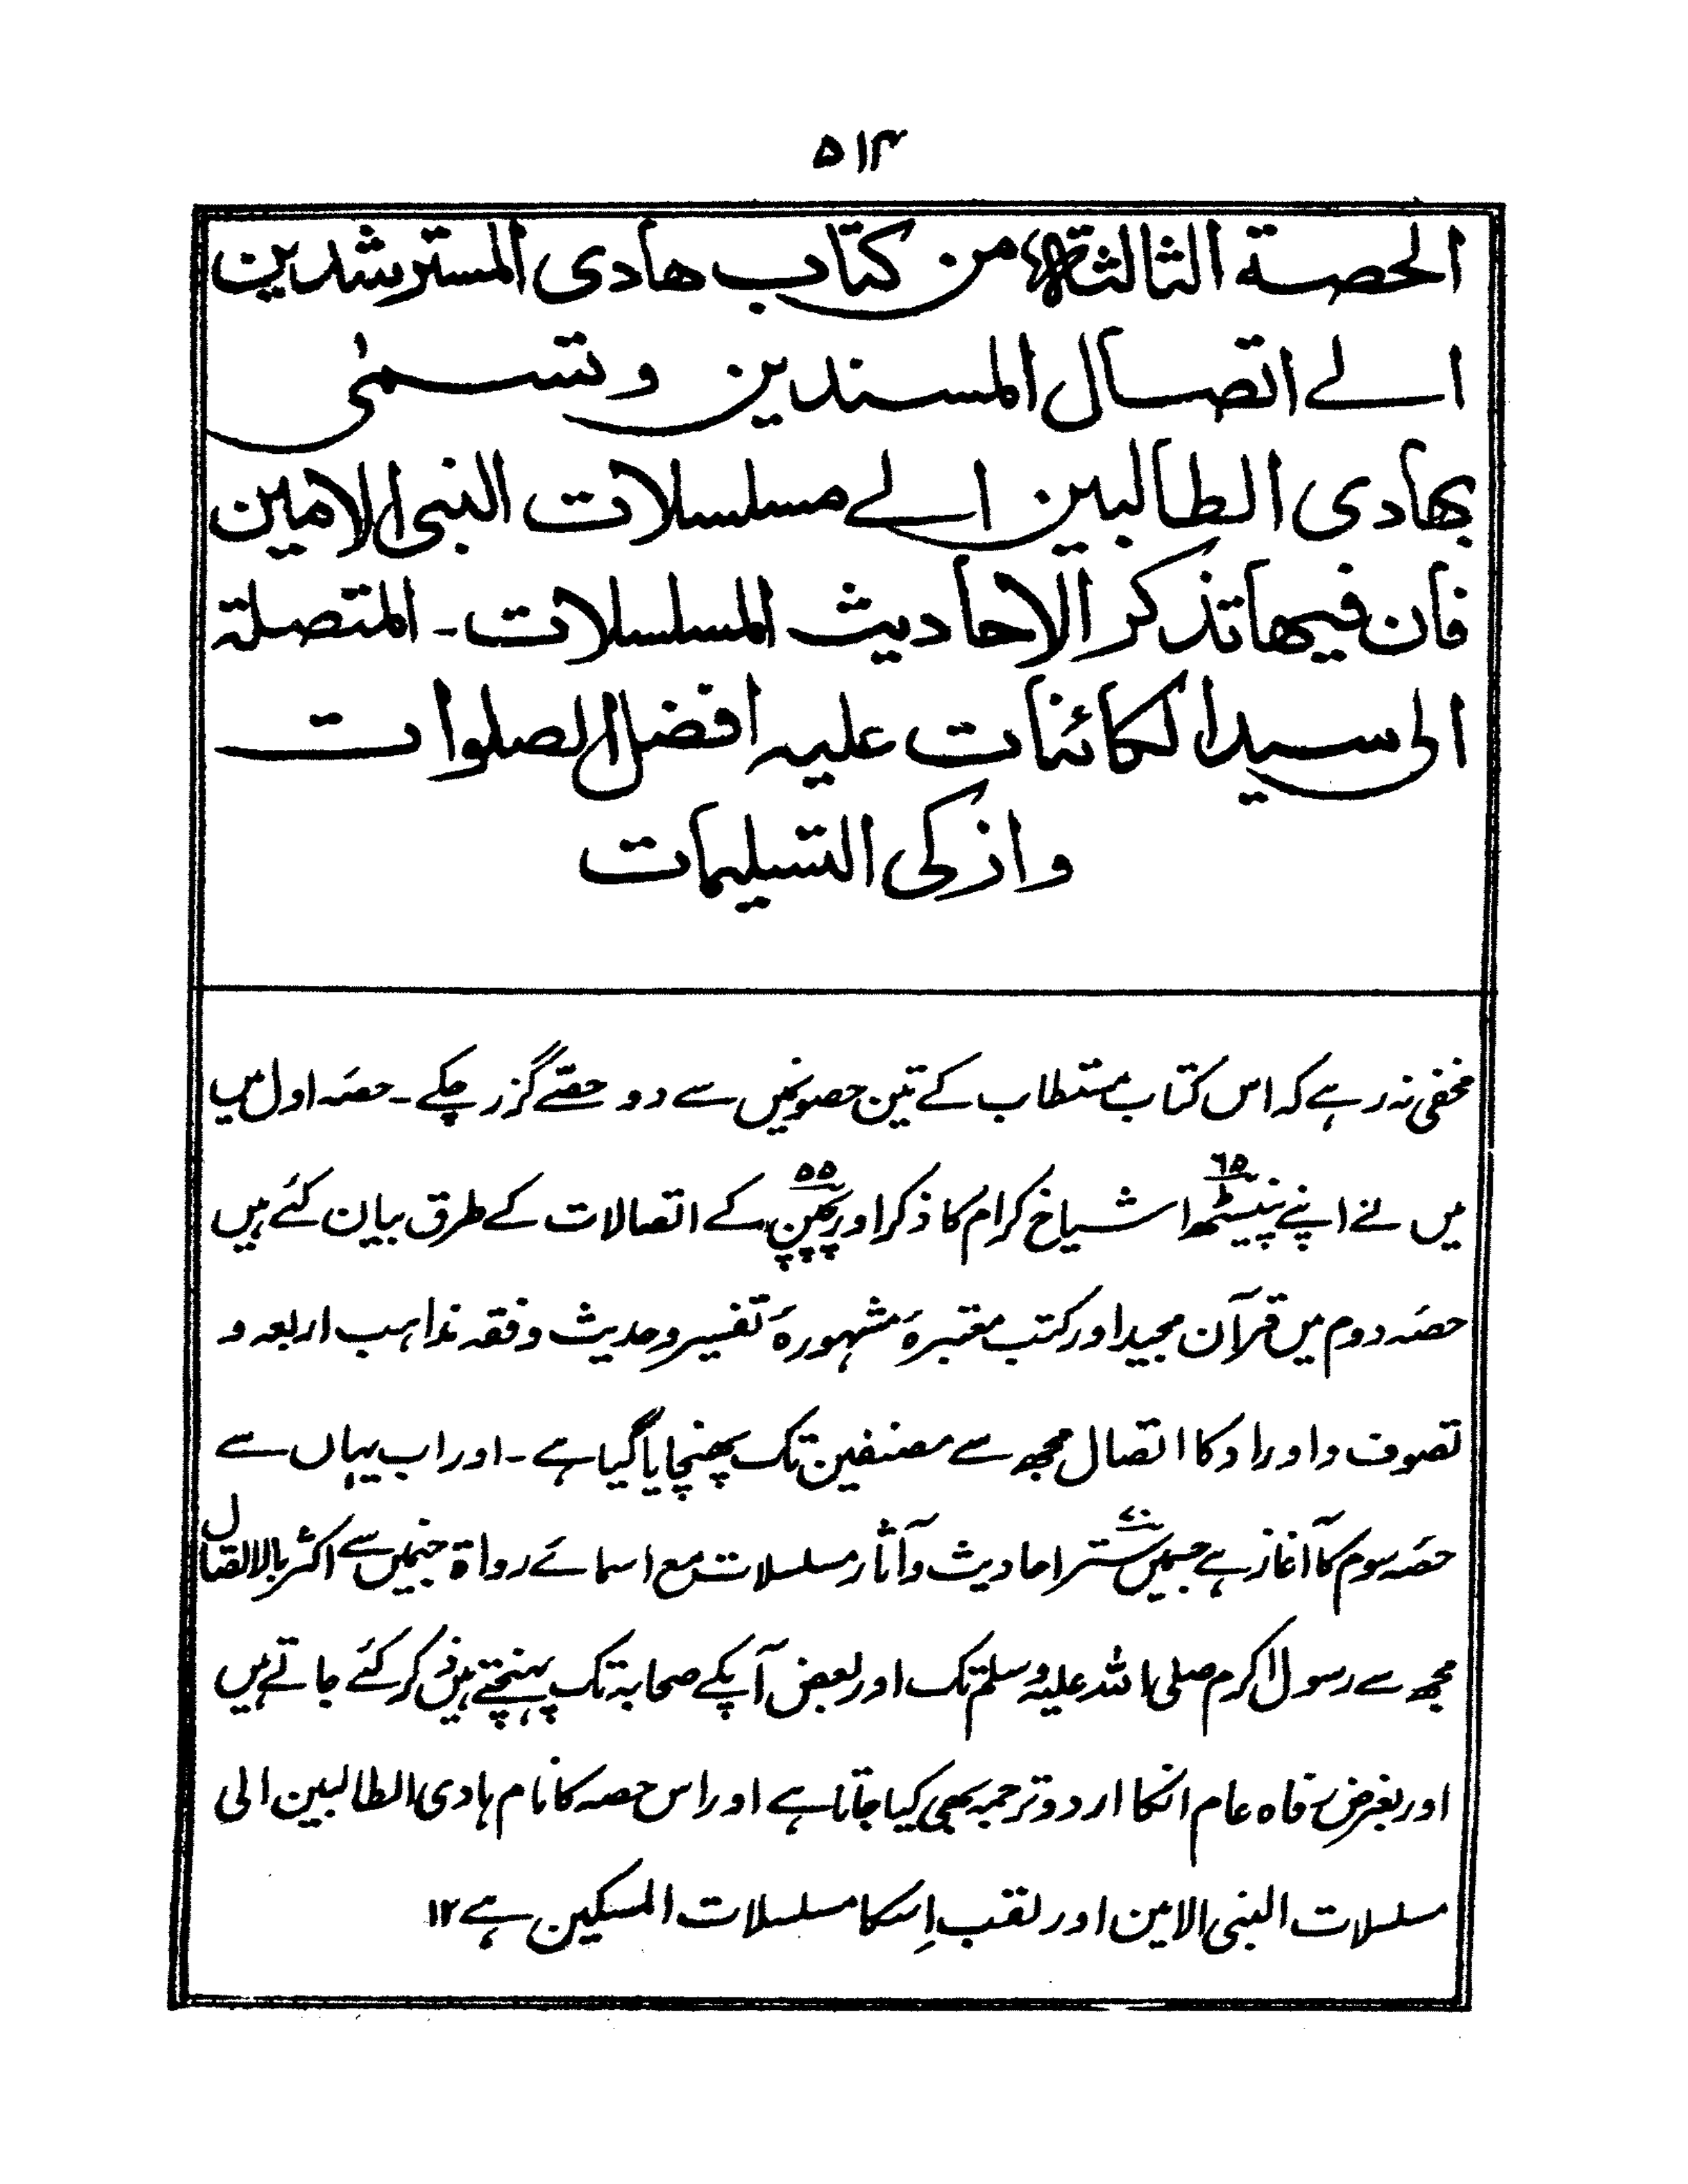 ۵۱۴
الحصة الثالثة من كتاب هادى المسترشدين
الے اتصال المسندين وتسمىٰ
بهادى الطالبين الے مسلسلات النبى الامين
فان فيها تذكر الاحاديث المسلسلات ۔ المتصلة
الى سيد الكائنات عليه افضل الصلوات
وازكى التسليمات
مخفی نہ رہے کہ اس کتاب مستطاب کے تین حصونمیں سے دو حصّے گزر چکے ۔ حصۂ اول میں
میں نے اپنے پینسٹھ ۶۵ اشیاخ کرام کا ذکر اور پچپن ۵۵ کے اتصالات کے طرق بیان کئے ہیں
حصۂ دوم میں قرآن مجید اور کتب معتبرۂ مشہورۂ تفسیر و حدیث و فقہ مذاہب اربعہ و
تصوف و اوراد کا اتصال مجھ سے مصنفین تک پہنچایا گیا ہے ۔ اور اب یہاں سے
حصۂ سوم کا آغاز ہے جسمیں ستر ۷۰ احادیث و آثار مسلسلات مع اسمائے رواۃ جنمیں سے اکثر بالاتصال
مجھ سے رسول اکرم صلی اللہ علیہ وسلم تک اور بعض آپکے صحابہ تک پہنچتے ہیں ذکر کئے جاتے ہیں
اور بغرض رفاہ عام انکا اردو ترجمہ بھی کیا جاتا ہے اور اس حصہ کا نام ہادی الطالبین الی
مسلسلات النبی الامین اور لقب اِسکا مسلسلات المسکین ہے ۱۲